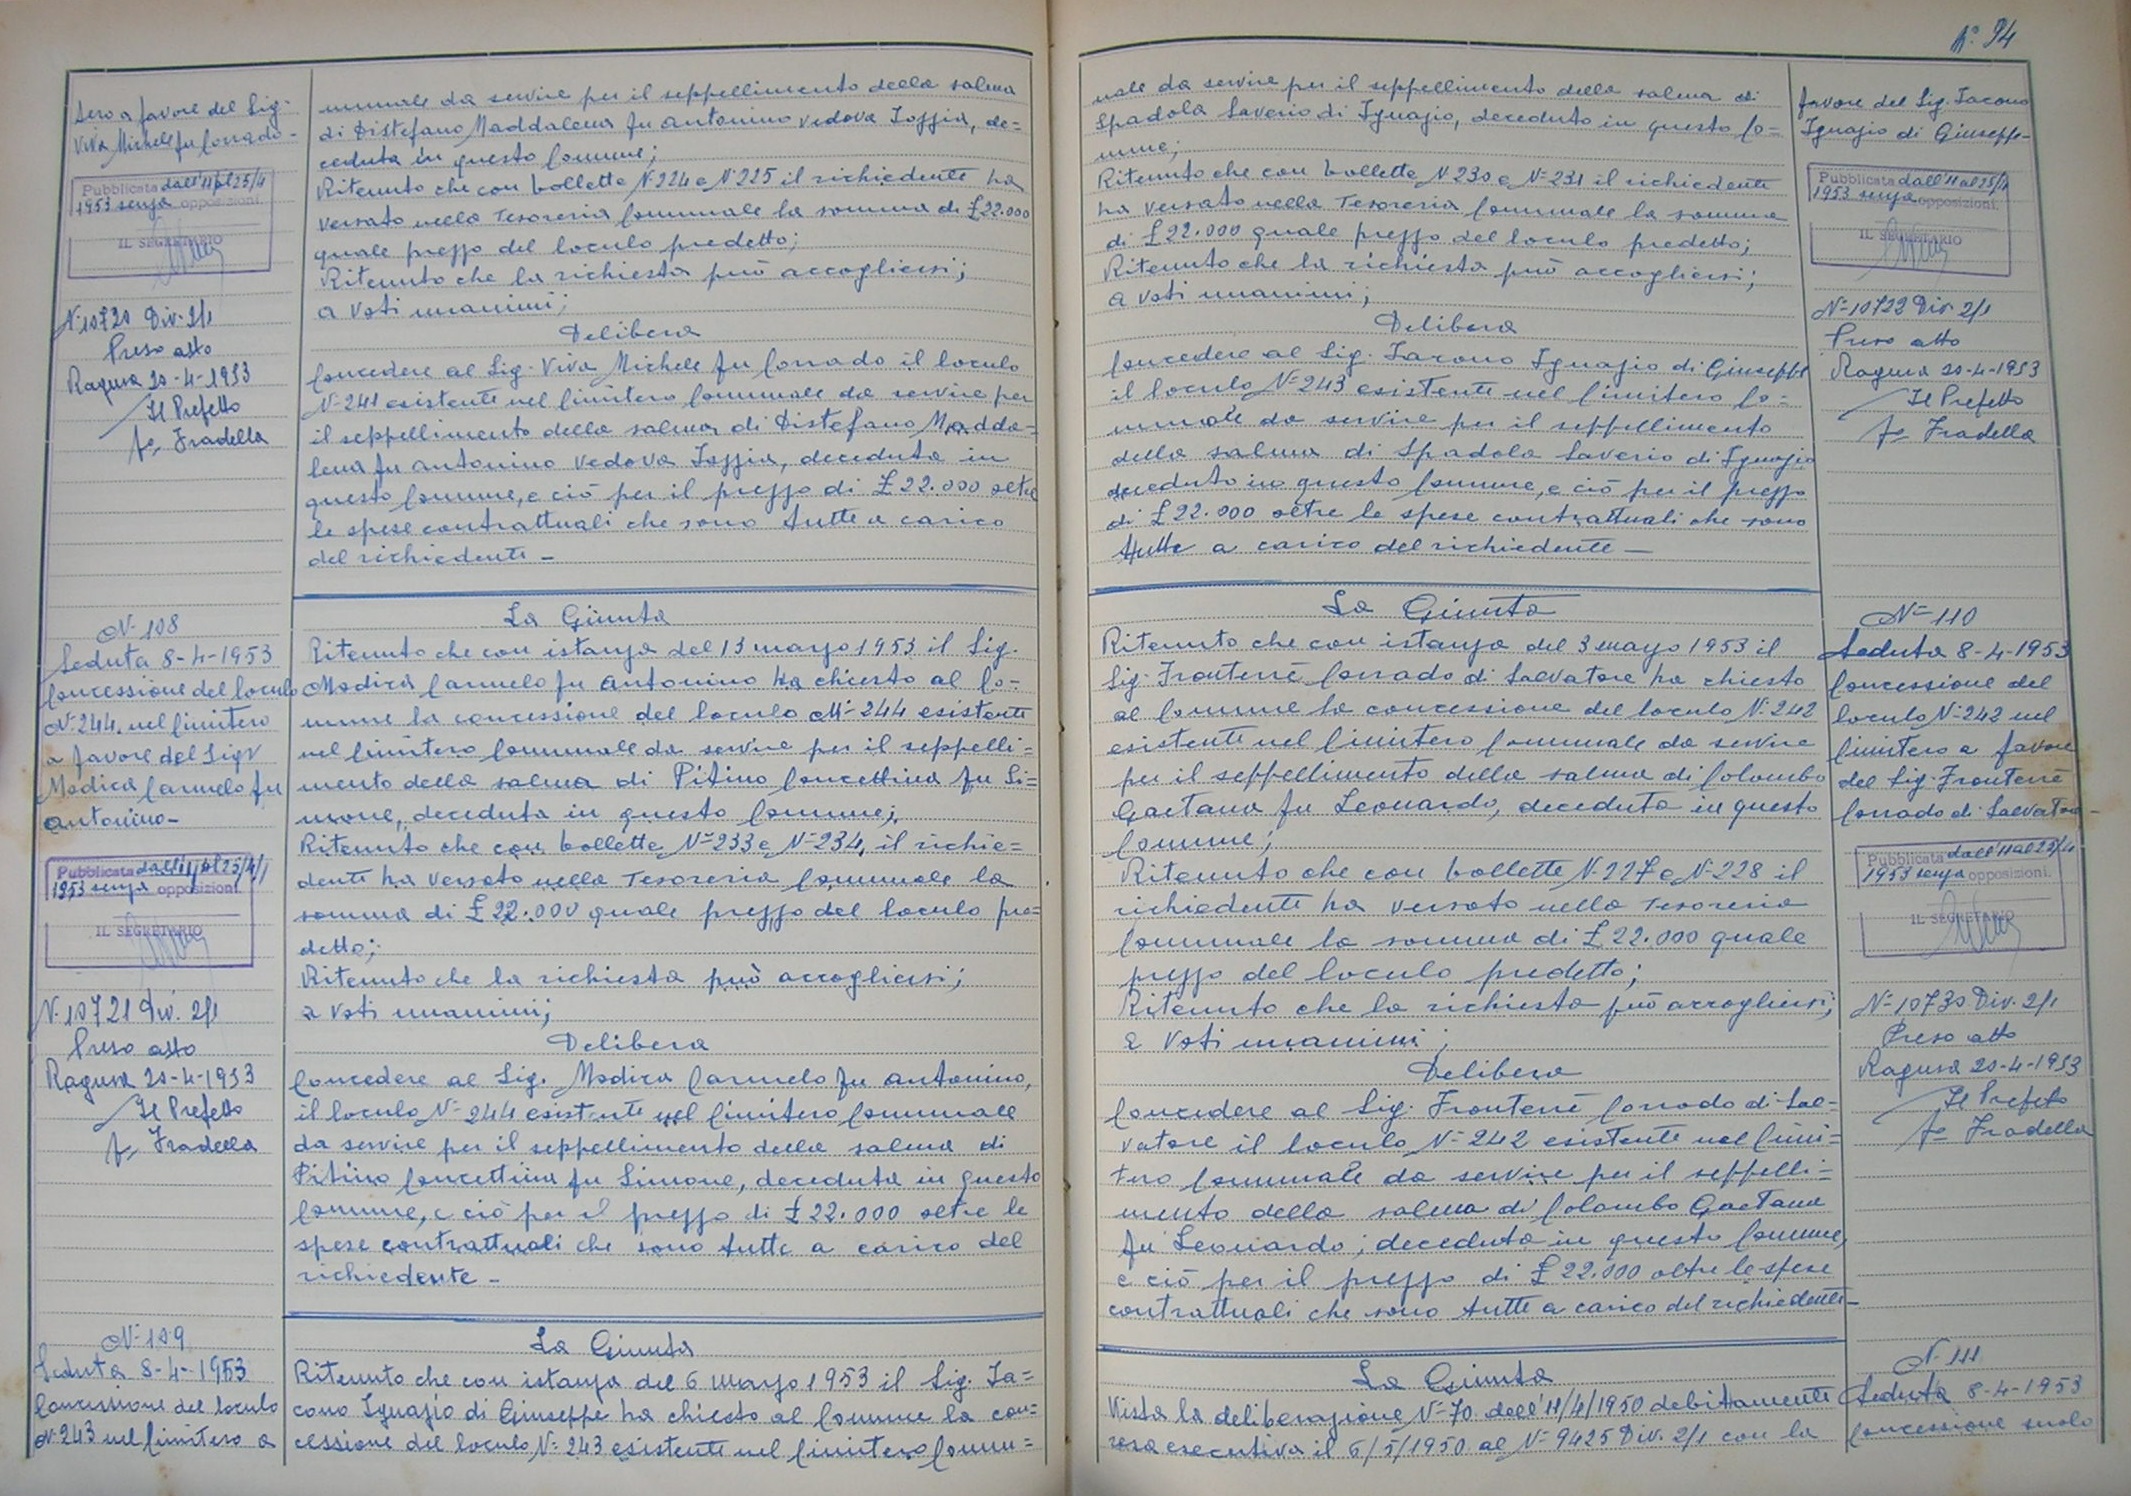 N° 94
tero a favore del Sig.
Viva Michele fu Corrado-
Pubblicata dall'11 al 25/4
1953 senza opposizioni.
IL SEGRETARIO
N. 10720 Div. 2/1
Preso atto
Ragusa 20-4-1953
Il Prefetto
Fradella
N. 108
Seduta 8-4-1953
Concessione del loculo
N. 244 nel Cimitero
a favore del Sigr
Modica Carmelo fu
Antonino-
Pubblicata dall'11 al 25/4/
1953 senza opposizioni
IL SEGRETARIO
N. 10721 Div. 2/1
Preso atto
Ragusa 20-4-1953
Il Prefetto
Fradella
N. 109
Seduta 8-4-1953
Concessione del loculo
N. 243 nel Cimitero a
munale da servire per il seppellimento della salma
di Distefano Maddalena fu Antonino vedova Ioppia, de=
ceduta in questo Comune;
Ritenuto che con bollette N. 224 e N. 225 il richiedente ha
versato nella Tesoreria Comunale la somma di £ 22.000
quale prezzo del loculo predetto;
Ritenuto che la richiesta può accogliersi;
a voti unanimi;
Delibera
Concedere al Sig. Viva Michele fu Corrado il loculo
N. 241 esistente nel Cimitero Comunale da servire per
il seppellimento della salma di Distefano Madda=
lena fu Antonino vedova Ioppia, deceduta in
questo Comune, e ciò per il prezzo di £ 22.000 oltre
le spese contrattuali che sono tutte a carico
del richiedente -
La Giunta
Ritenuto che con istanza del 13 marzo 1953 il Sig.
Modica Carmelo fu Antonino ha chiesto al Co=
mune la concessione del loculo N. 244 esistente
nel Cimitero Comunale da servire per il seppelli=
mento della salma di Pitino Concettina fu Si=
mone, deceduta in questo Comune;
Ritenuto che con bollette N. 233 e N. 234, il richie=
dente ha versato nella Tesoreria Comunale la
somma di £ 22.000 quale prezzo del loculo pre=
detto;
Ritenuto che la richiesta può accogliersi;
a voti unanimi;
Delibera
Concedere al Sig. Modica Carmelo fu Antonino,
il loculo N. 244 esistente nel Cimitero Comunale
da servire per il seppellimento della salma di
Pitino Concettina fu Simone, deceduta in questo
Comune, e ciò per il prezzo di £ 22.000 oltre le
spese contrattuali che sono tutte a carico del
richiedente -
La Giunta
Ritenuto che con istanza del 6 marzo 1953 il Sig. Ia=
cono Ignazio di Giuseppe ha chiesto al Comune la con=
cessione del loculo N. 243 esistente nel Cimitero Comu=
nale da servire per il seppellimento della salma di
Spadola Saverio di Ignazio, deceduto in questo Co=
mune;
Ritenuto che con bollette N. 230 e N. 231 il richiedente
ha versato nella Tesoreria Comunale la somma
di £ 22.000 quale prezzo del loculo predetto;
Ritenuto che la richiesta può accogliersi;
a voti unanimi;
Delibera
Concedere al Sig. Iacono Ignazio di Giuseppe
il loculo N. 243 esistente nel Cimitero Co=
munale da servire per il seppellimento
della salma di Spadola Saverio di Ignazio
deceduto in questo Comune, e ciò per il prezzo
di £ 22.000 oltre le spese contrattuali che sono
tutte a carico del richiedente -
La Giunta
Ritenuto che con istanza del 3 marzo 1953 il
Sig. Fronterrè Corrado di Salvatore ha chiesto
al Comune la concessione del loculo N. 242
esistente nel Cimitero Comunale da servire
per il seppellimento della salma di Colombo
Gaetana fu Leonardo, deceduta in questo
Comune;
Ritenuto che con bollette N. 227 e N. 228 il
richiedente ha versato nella Tesoreria
Comunale la somma di £ 22.000 quale
prezzo del loculo predetto;
Ritenuto che la richiesta può accogliersi;
a voti unanimi;
Delibera
Concedere al Sig. Fronterrè Corrado di Sal=
vatore il loculo N. 242 esistente nel Cimi=
tero Comunale da servire per il seppelli=
mento della salma di Colombo Gaetana
fu Leonardo, deceduta in questo Comune,
e ciò per il prezzo di £ 22.000 oltre le spese
contrattuali che sono tutte a carico del richiedente-
La Giunta
Vista la deliberazione N. 70 dell'11/4/1950 debitamente
resa esecutiva il 6/5/1950 al N. 9425 Div. 2/1 con la
favore del Sig. Iacono
Ignazio di Giuseppe-
Pubblicata dall'11 al 25/4
1953 senza opposizioni.
IL SEGRETARIO
N. 10722 Div. 2/1
Preso atto
Ragusa 20-4-1953
Il Prefetto
Fradella
N. 110
Seduta 8-4-1953
Concessione del
loculo N. 242 nel
Cimitero a favore
del Sig. Fronterrè
Corrado di Salvatore-
Pubblicata dall'11 al 25/4
1953 senza opposizioni.
IL SEGRETARIO
N. 10730 Div. 2/1
Preso atto
Ragusa 20-4-1953
Il Prefetto
Fradella
N. 111
Seduta 8-4-1953
Concessione suolo